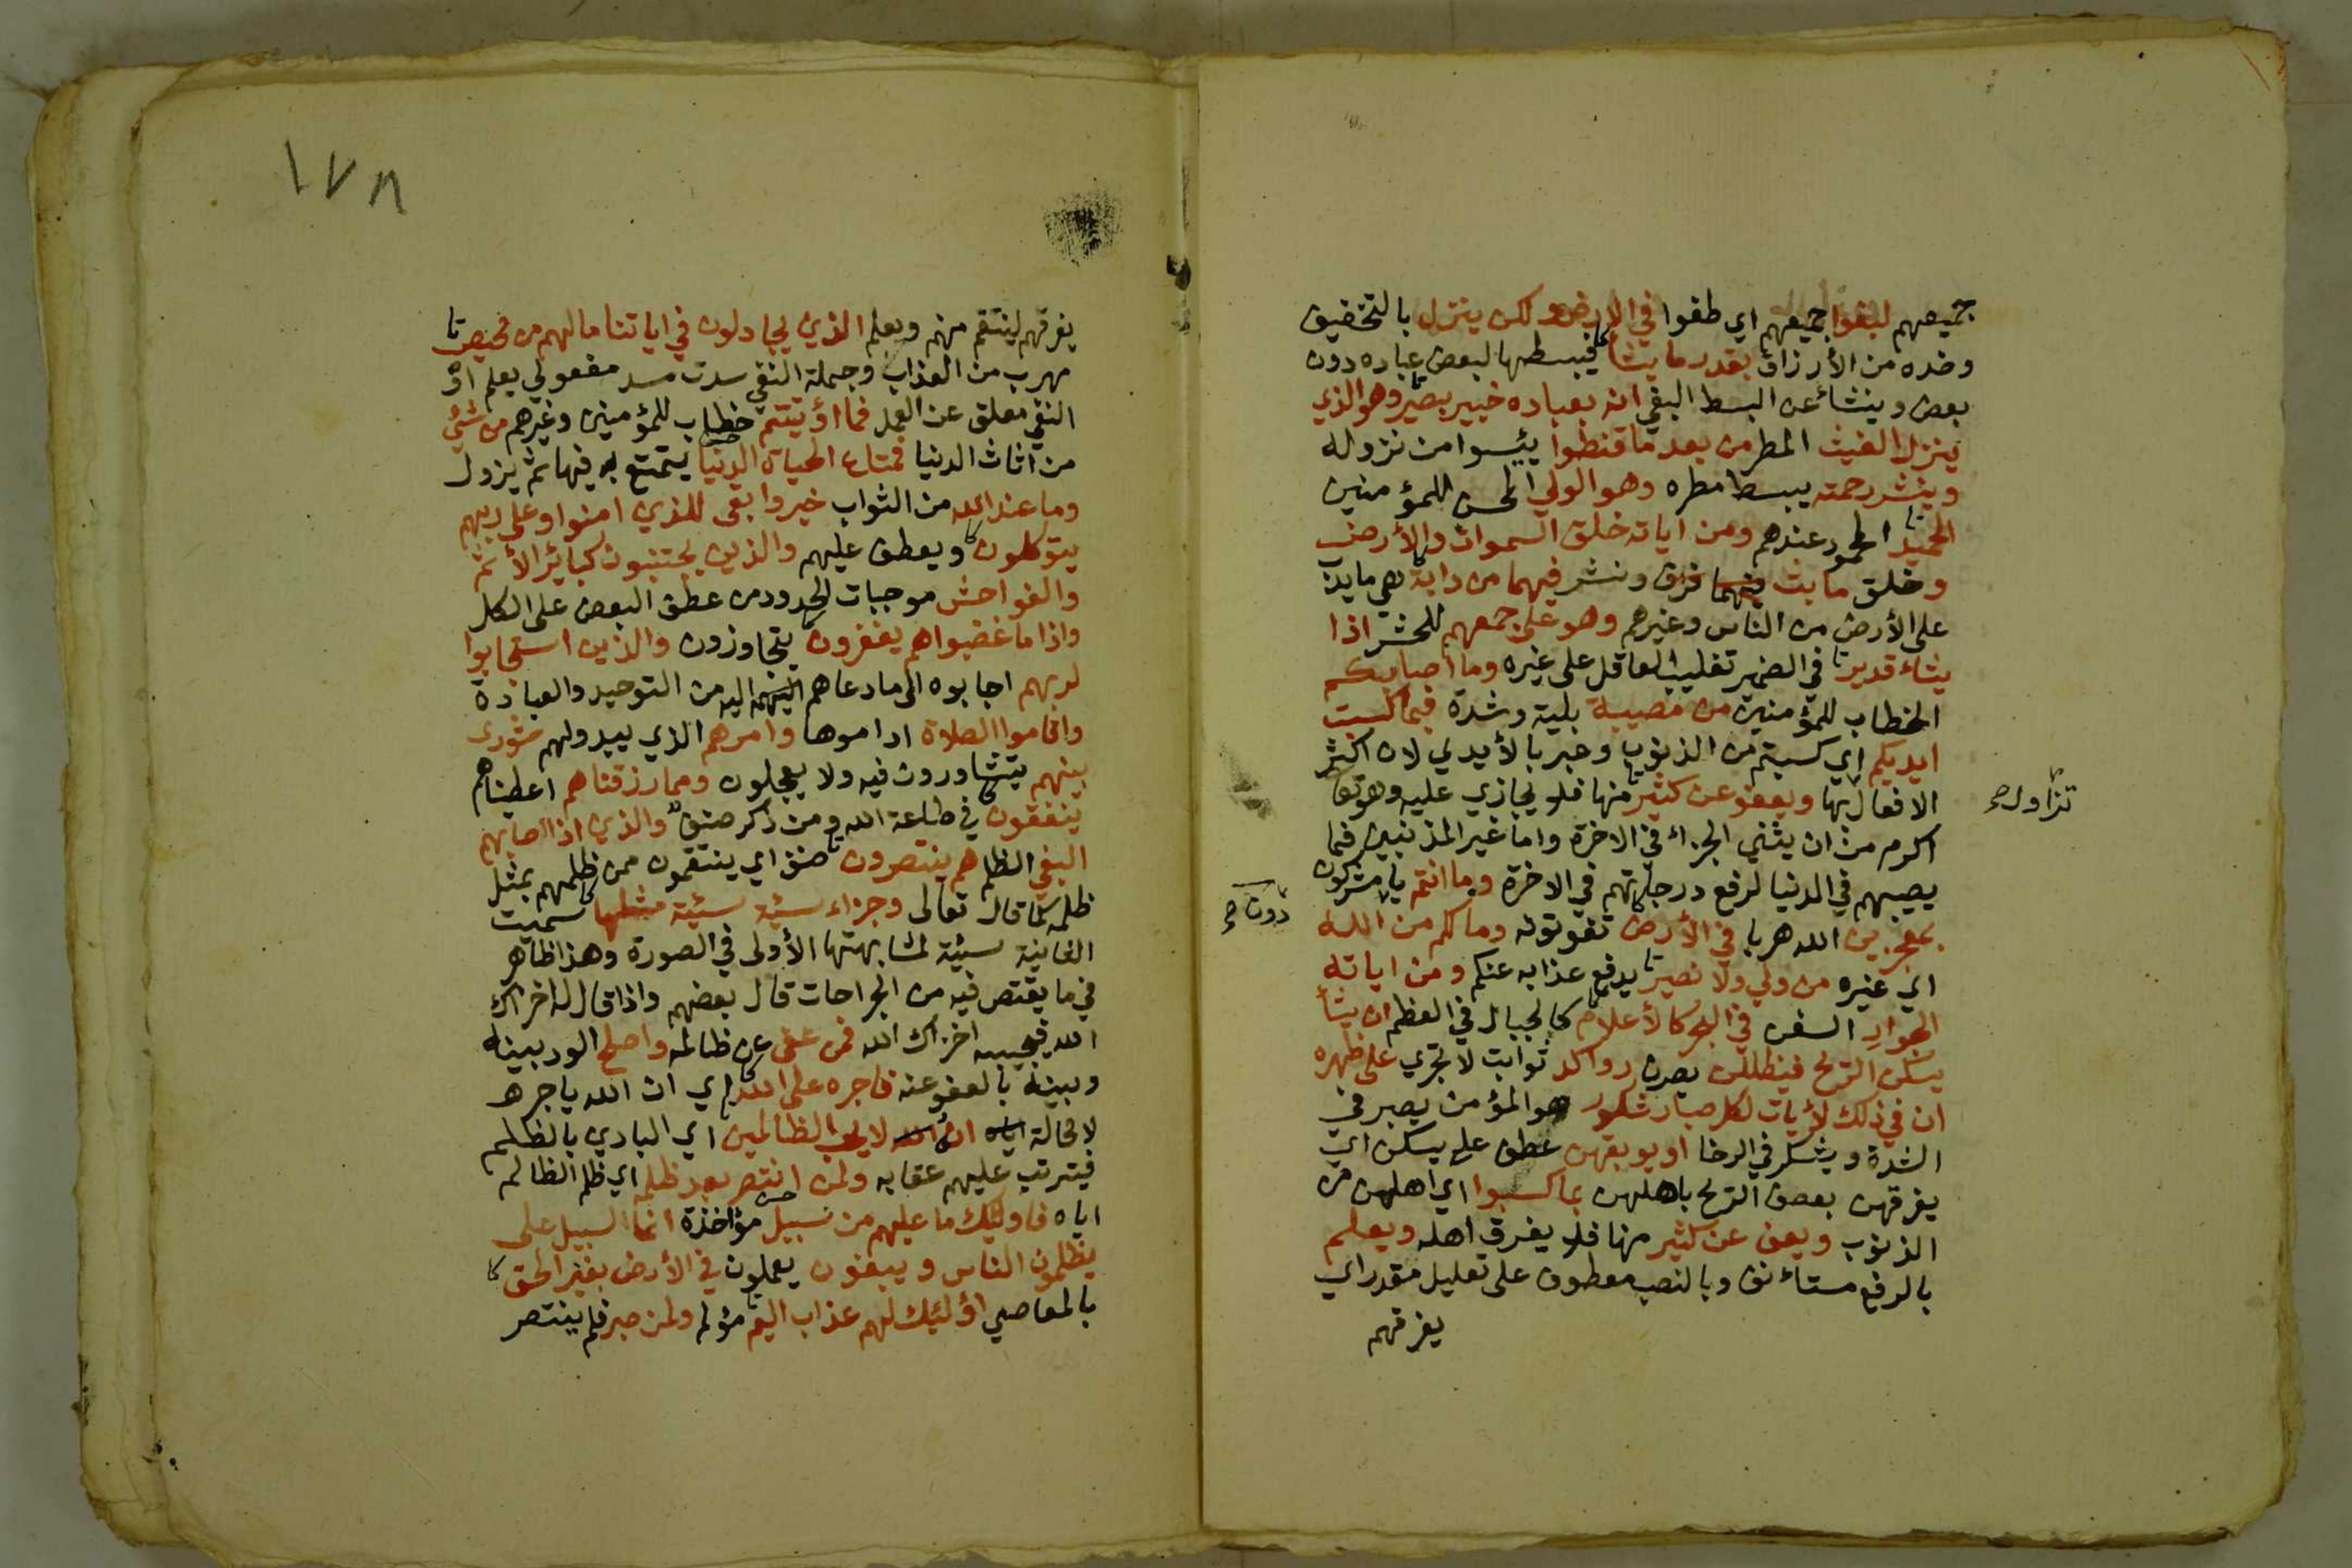 جميعهم لبغوا جميعهم اي طغوا في الارض ولكن ينزل بالتخفيف
وضده من الأرزاق بقدر ما يشاء فيبسطها لبعض عباده دون
بعض وينشاء عن البسط البغي انه بعباده خبير بصير وهو الذي
ينزل الغيث المطر من بعد ما قنطوا يئسوا من نزوله
وينشر رحمته يبسط مطره وهو الولي المحسن للمؤمنين
الحميد المحمود عندهم ومن اياته خلق السموات والأرض
وخلق ما بث فيهما فرق ونشر فيهما من دابة هي ما يدب
على الأرض من الناس وغيرهم وهو على جمعهم للحشر اذا
يشاء قدير في الضمير تغليب العاقل على غيره وما اصابكم
الخطاب للمؤمنين من مصيبة بلية وشدة فبما كسبت
ايديكم اي كسبتم من الذنوب وعبر بالأيدي لان اكثر
الافعال بها ويعفو عن كثير منها فلا يجازي عليه وهو تعا
تزاول صح
اكرم من ان يثني الجزاء في الاخرة واما غير المذنبين فما
يصيبهم في الدنيا لرفع درجاتهم في الاخرة وما انتم يا مشركون
بمعجزين الله هربا في الأرض تفوتونه وما لكم من دون الله
اي غيره من ولي ولا نصير يدفع عذابه عنكم ومن اياته
الجوار السفن في البحر كالأعلام كالجبال في العظم ان يشأ
يسكن الريح فيظللن يصرن رواكد ثوابت لا تجري على ظهره
ان في ذلك لأيات لكل صبار شكور هو المؤمن يصبر في
الشدة ويشكر في الرخا او يوبقهن عطف على يسكن اي
يغرقهن بعصف الريح باهلهن بما كسبوا اي اهلهن من
الذنوب ويعف عن كثير منها فلا يغرق اهله ويعلم
بالرفع مستأنف وبالنصب معطوف على تعليل مقدر اي
يغرقهم
١٧٨
يغرقهم لينتقم منهم ويعلم الذين يجادلون في اياتنا ما لهم من محيص
مهرب من العذاب وجملة النفي سدت مسد مفعولي يعلم او
النفي معلق عن العمل فما أوتيتم خطاب للمؤمنين وغيرهم من شيئ
من اثاث الدنيا فمتاع الحياة الدنيا يتمتع به فيها ثم يزول
وما عند الله من الثواب خير وابقى للذين امنوا وعلى ربهم
يتوكلون ويعطف عليهم والذين يجتنبون كبائر الأثم
والفواحش موجبات الحدود من عطف البعض على الكل
واذا ما غضبوا هم يغفرون يتجاوزون والذين استجابوا
لربهم اجابوه الى ما دعاهم اليه من التوحيد والعبادة
واقاموا الصلاة اداموها وامرهم الذي يبدو لهم شورى
بينهم يتشاورون فيه ولا يعجلون ومما رزقناهم اعطيناهم
ينفقون في طاعة الله ومن ذكر صنف والذين اذا اصابهم
البغي الظلم هم ينتصرون صنف اي ينتقمون ممن ظلمهم بمثل
ظلمه كما قال تعالى وجزاء سيئة سيئة مثلها سميت
الثانية سيئة لمشابهتها الأولى في الصورة وهذا ظاهر
في ما يقتص فيه من الجراحات قال بعضهم واذا قال له اخزاك
الله فيجيبه اخزاك الله فمن عفى عن ظالمه واصلح الود بينه
وبينه بالعفو عنه فاجره على الله اي ان الله ياجره
لا محالة انه لا يحب الظالمين اي البادي بالظلم
فيترتب عليهم عقابه ولمن انتصر بعد ظلمه اي ظلم الظالم
اياه فاولئك ما عليهم من سبيل مؤاخذة انما السبيل على
يظلمون الناس ويبغون يعملون في الأرض بغير الحق
بالمعاصي اولئك لهم عذاب اليم مؤلم ولمن صبر فلم ينتصر